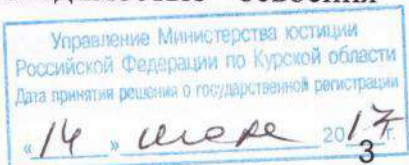 освоения
Управление Министерства юстиции
Российской Федерации по Курской области
Дата принятия решения о государственной регистрации
« 14 » 2017 г.
3